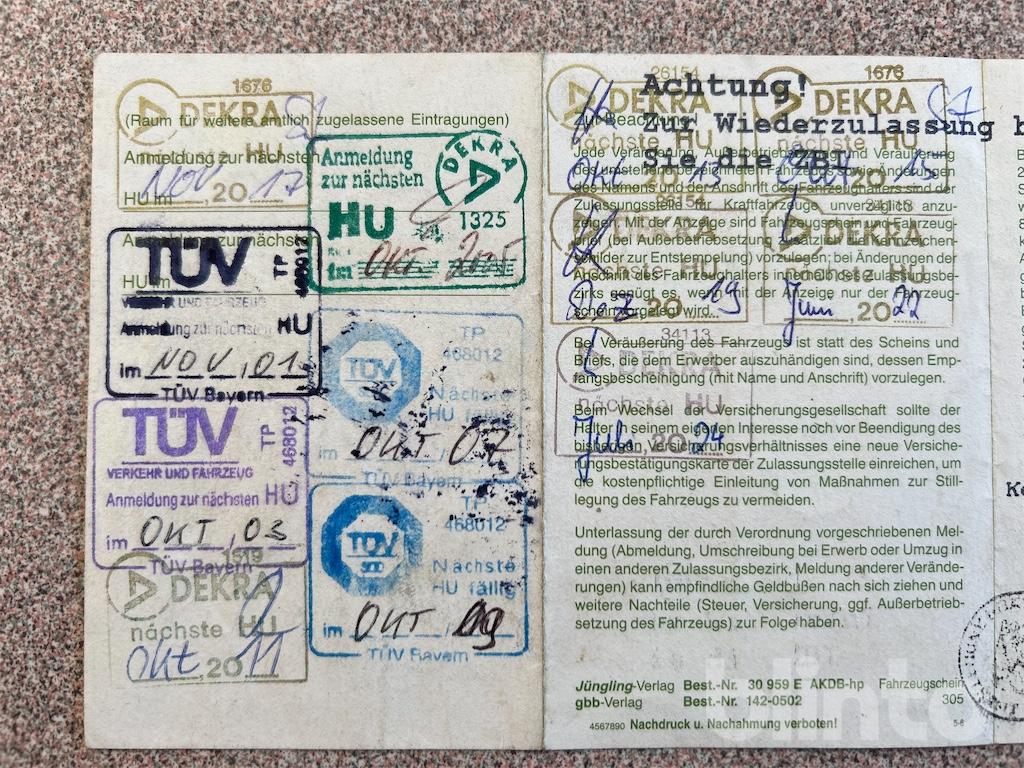 1676
DEKRA
(Raum für weitere amtlich zugelassene Eintragungen)
Anmeldung zur nächsten
HU
HU im
NOV, 2017
Anmeldung zur nächsten
HU im
Anmeldung
zur nächsten
DEKRA
HU
1325
im OKT. 2005
TÜV
TP
468012
VERKEHR UND FAHRZEUG
Anmeldung zur nächsten HU
im NOV, 01
TÜV Bayern
TÜV
TP
468012
VERKEHR UND FAHRZEUG
Anmeldung zur nächsten HU
im OKT, 03
TÜV Bayern
TP
468012
TÜV
Nächste
HU fällig
im OKT 07
TÜV Bayern
TP
468012
TÜV
Nächste
HU fällig
im OKT 09
TÜV Bayern
1519
DEKRA
nächste HU
Okt, 2011
26154
DEKRA
nächste HU
Okt 2013
1676
DEKRA
nächste HU
2015
Achtung!
Zur Wiederzulassung b
Sie die ZB1
Zur Beachtung!
Jede Veräußerung, Außerbetriebsetzung und Veräußerung
des umstehenden beschriebenen Fahrzeugs sowie Änderungen
des Namens und der Anschrift des Fahrzeughalters sind der
Zulassungsstelle für Kraftfahrzeuge unverzüglich anzu-
zeigen. Mit der Anzeige sind Fahrzeugschein und Fahrzeug-
brief (bei Außerbetriebsetzung zusätzlich die Kennzeichen-
schilder zur Entstempelung) vorzulegen; bei Änderungen der
Anschrift des Fahrzeughalters innerhalb des Zulassungsbe-
zirks genügt es, wenn mit der Anzeige nur der Fahrzeug-
schein vorgelegt wird.
26154
DEKRA
nächste HU
Dez 2019
34113
DEKRA
nächste HU
Juni, 2022
Bei Veräußerung des Fahrzeugs ist statt des Scheins und
Briefs, die dem Erwerber auszuhändigen sind, dessen Emp-
fangsbescheinigung (mit Name und Anschrift) vorzulegen.
34113
DEKRA
nächste HU
Juli, 2024
Beim Wechsel der Versicherungsgesellschaft sollte der
Halter in seinem eigenen Interesse noch vor Beendigung des
bisherigen Versicherungsverhältnisses eine neue Versiche-
rungsbestätigungskarte der Zulassungsstelle einreichen, um
die kostenpflichtige Einleitung von Maßnahmen zur Still-
legung des Fahrzeugs zu vermeiden.
Unterlassung der durch Verordnung vorgeschriebenen Mel-
dung (Abmeldung, Umschreibung bei Erwerb oder Umzug in
einen anderen Zulassungsbezirk, Meldung anderer Verände-
rungen) kann empfindliche Geldbußen nach sich ziehen und
weitere Nachteile (Steuer, Versicherung, ggf. Außerbetrieb-
setzung des Fahrzeugs) zur Folge haben.
Jüngling-Verlag Best.-Nr. 30 959 E AKDB-hp Fahrzeugschein
gbb-Verlag Best.-Nr. 142-0502 305
4567890 Nachdruck u. Nachahmung verboten! 5-6
blinto